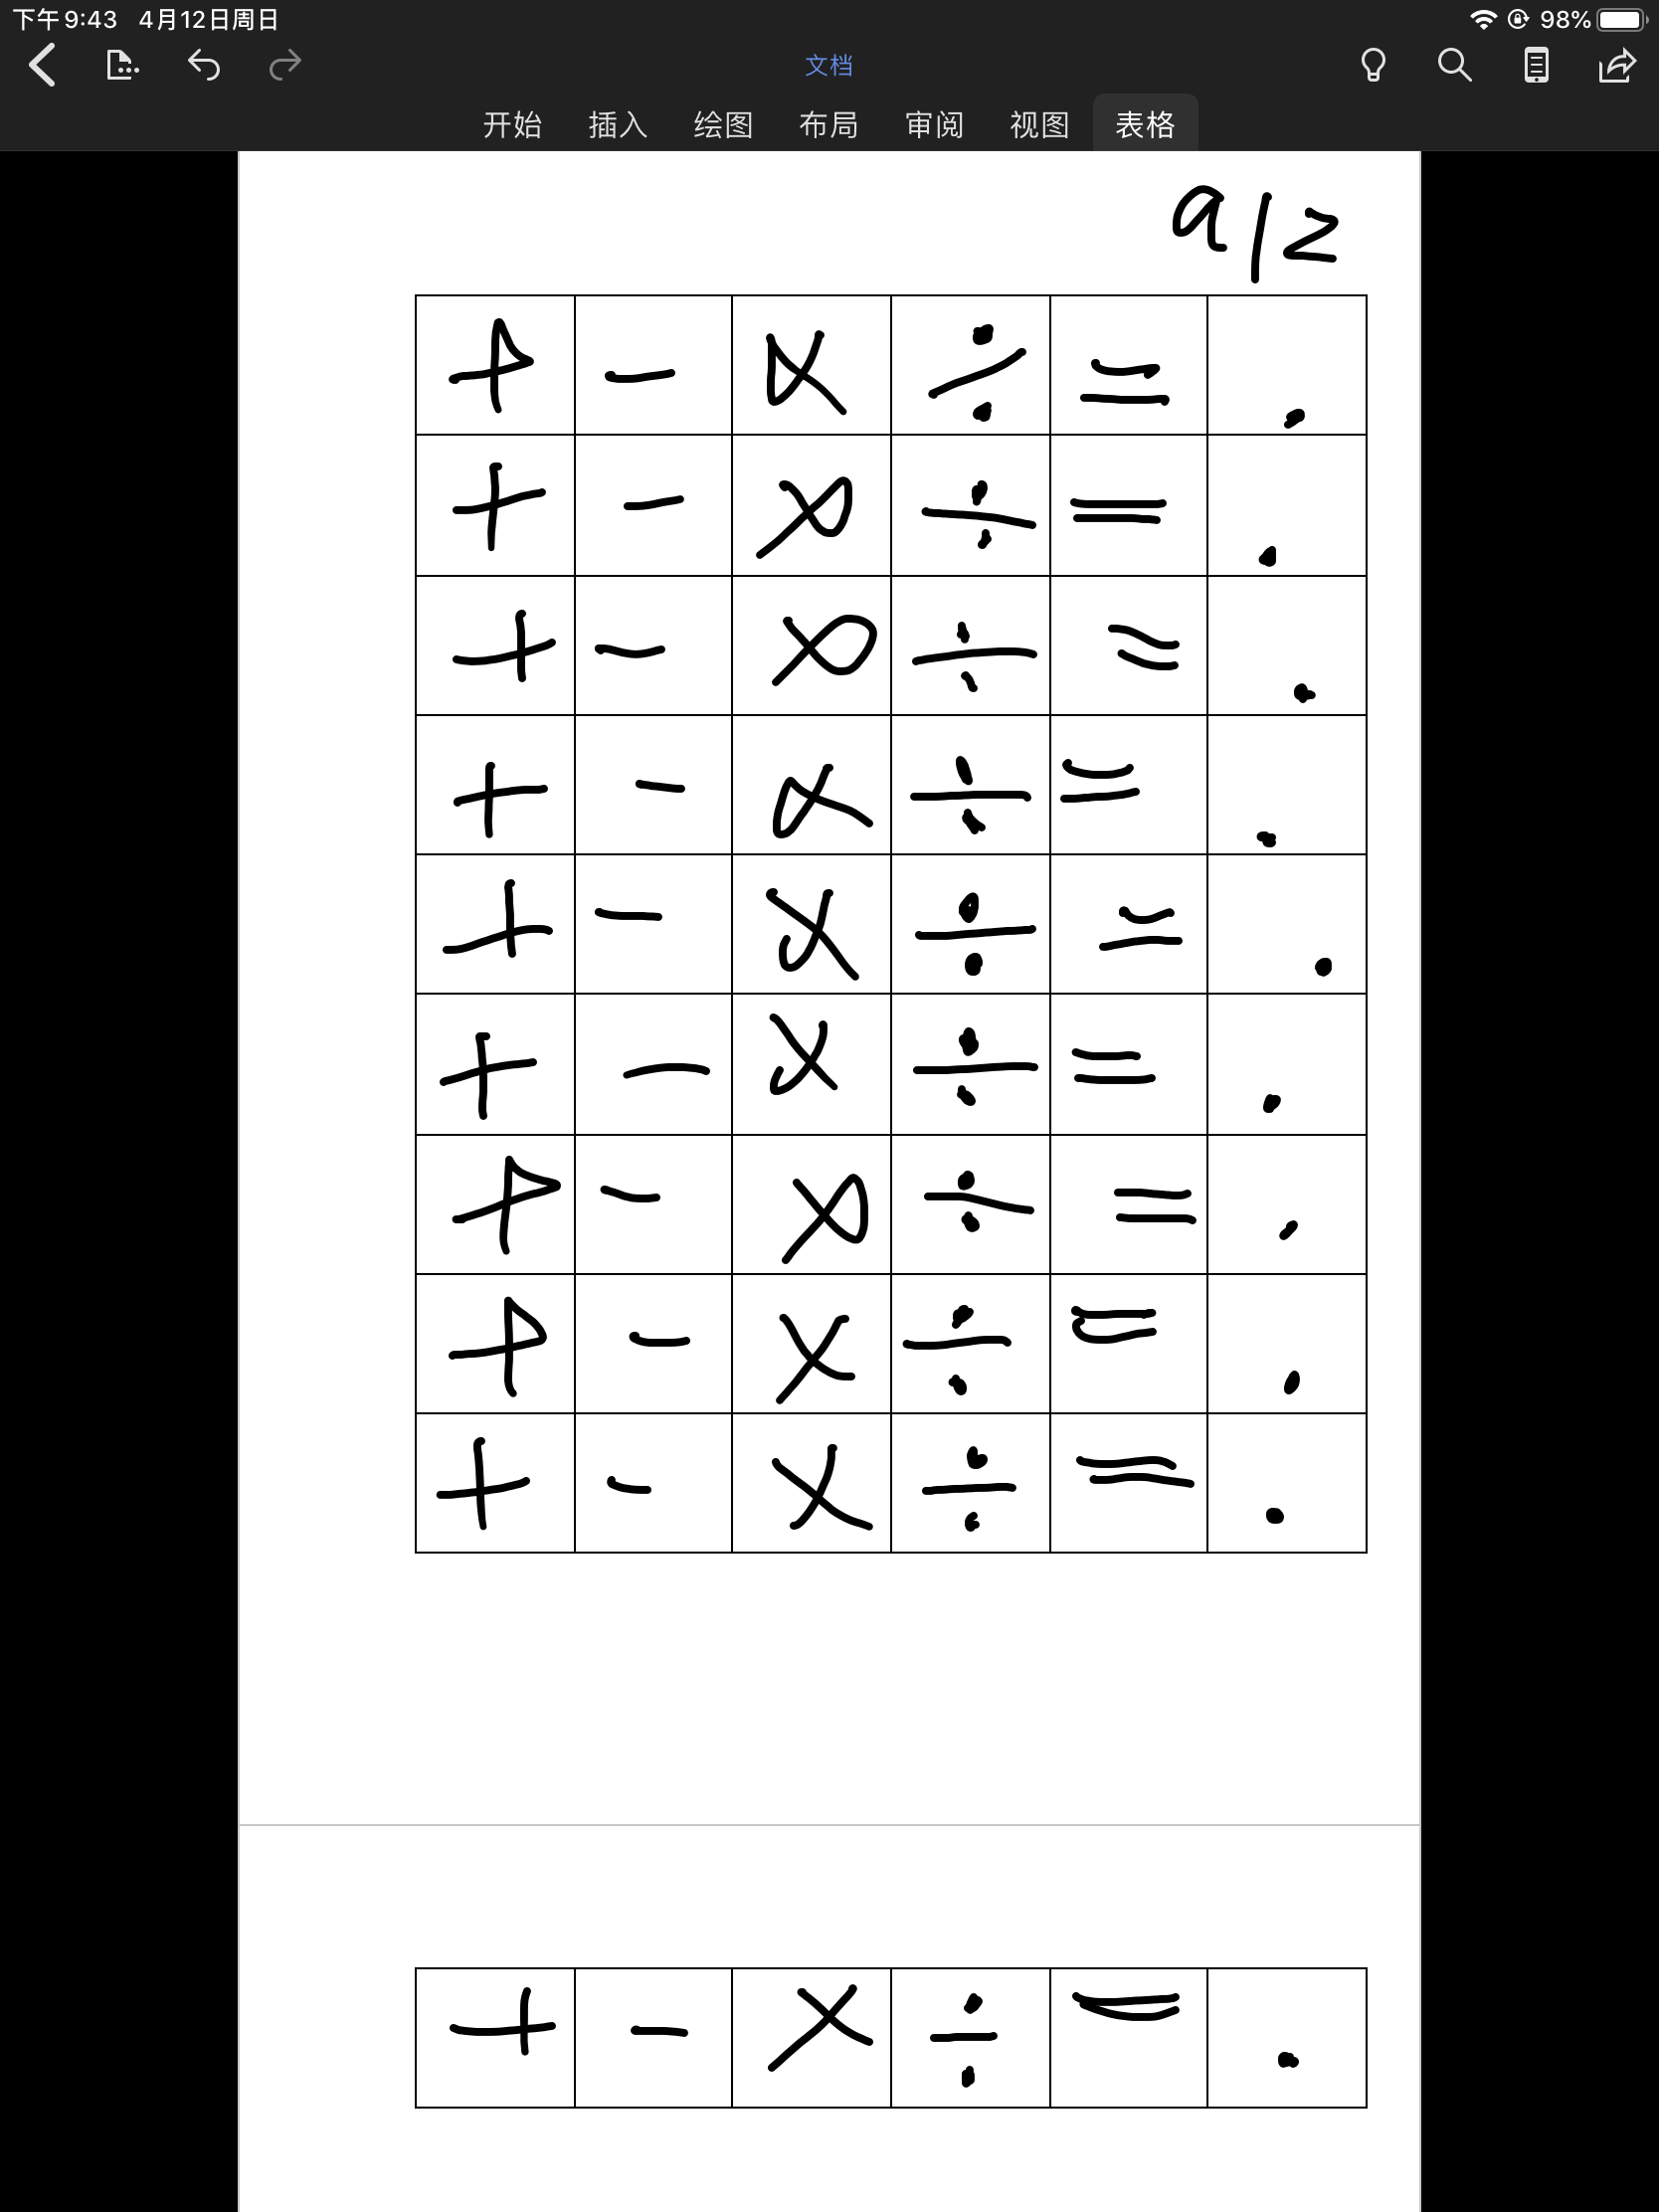 下午9:43 4月12日周日 98%
文档
开始 插入 绘图 布局 审阅 视图 表格
a/2
+ - × ÷ = .
+ - × ÷ = .
+ - × ÷ = .
+ - × ÷ = .
+ - × ÷ = .
+ - × ÷ = .
+ - × ÷ = .
+ - × ÷ = .
+ - × ÷ = .
+ - × ÷ = .